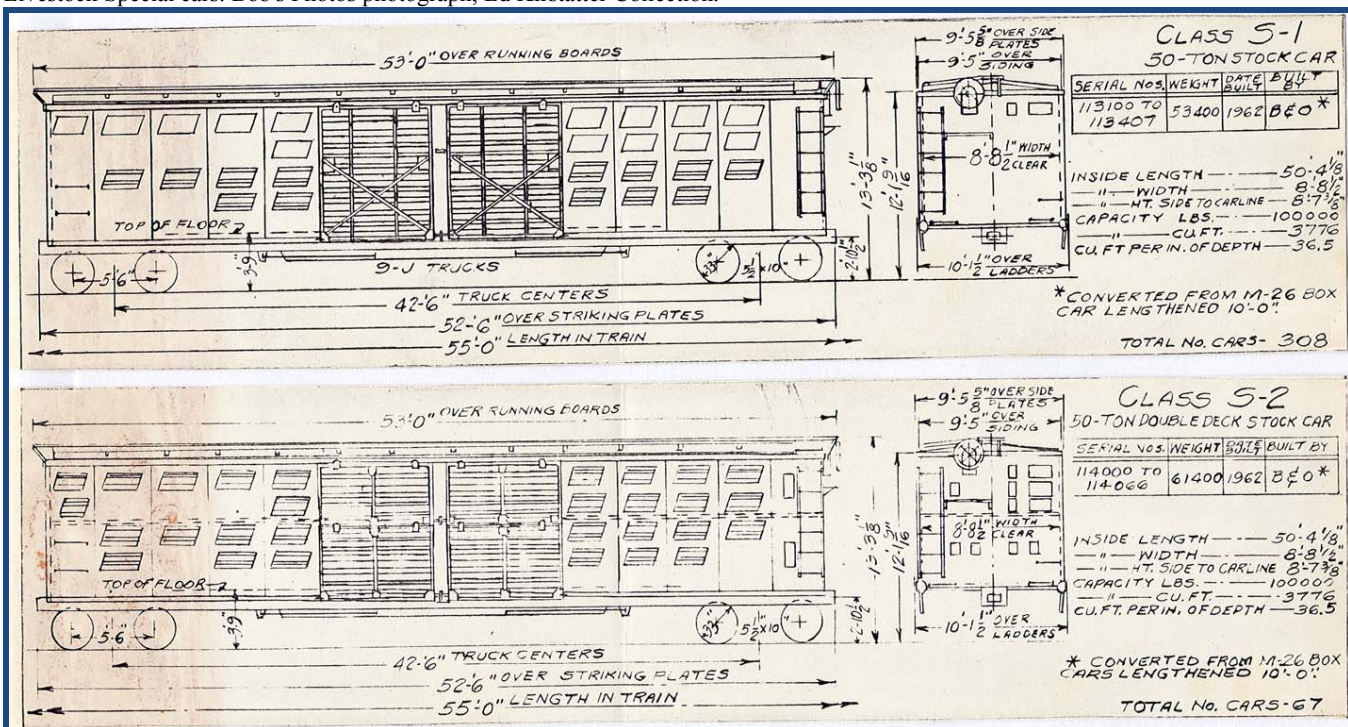 Livestock Special cars. Bob's Photos photograph, Ed Kirstatter Collection.
53'-0" OVER RUNNING BOARDS
TOP OF FLOOR
3'-9"
5'-6"
9-J TRUCKS
33"
5½"x10"
2'-10½"
13'-3⅜"
12'-1 9/16"
42'-6" TRUCK CENTERS
52'-6" OVER STRIKING PLATES
55'-0" LENGTH IN TRAIN
9'-5⅝" OVER SIDE PLATES
9'-5" OVER SIDING
8'-8½" WIDTH CLEAR
10'-1½" OVER LADDERS
CLASS S-1
50-TON STOCK CAR
SERIAL NOS. WEIGHT DATE BUILT BUILT BY
113100 TO 113407 53400 1962 B&O*
INSIDE LENGTH 50'-4⅛"
-"- WIDTH 8'-8½"
-"- HT. SIDE TO CARLINE 8'-7⅜"
CAPACITY LBS. 100000
-"- CU. FT. 3776
CU. FT PER IN. OF DEPTH 36.5
*CONVERTED FROM M-26 BOX
CAR LENGTHENED 10'-0".
TOTAL NO. CARS- 308
53'-0" OVER RUNNING BOARDS
TOP OF FLOOR
3'-9"
5'-6"
33"
5½"x10"
2'-10½"
13'-3⅜"
12'-1 9/16"
42'-6" TRUCK CENTERS
52'-6" OVER STRIKING PLATES
55'-0" LENGTH IN TRAIN
9'-5⅝" OVER SIDE PLATES
9'-5" OVER SIDING
8'-8½" WIDTH CLEAR
10'-1½" OVER LADDERS
CLASS S-2
50-TON DOUBLE DECK STOCK CAR
SERIAL NOS. WEIGHT DATE BUILT BUILT BY
114000 TO 114066 61400 1962 B&O*
INSIDE LENGTH 50'-4⅛"
-"- WIDTH 8'-8½"
-"- HT. SIDE TO CARLINE 8'-7⅜"
CAPACITY LBS. 100000
-"- CU. FT. 3776
CU. FT. PER IN. OF DEPTH 36.5
* CONVERTED FROM M-26 BOX
CARS LENGTHENED 10'-0".
TOTAL NO. CARS-67